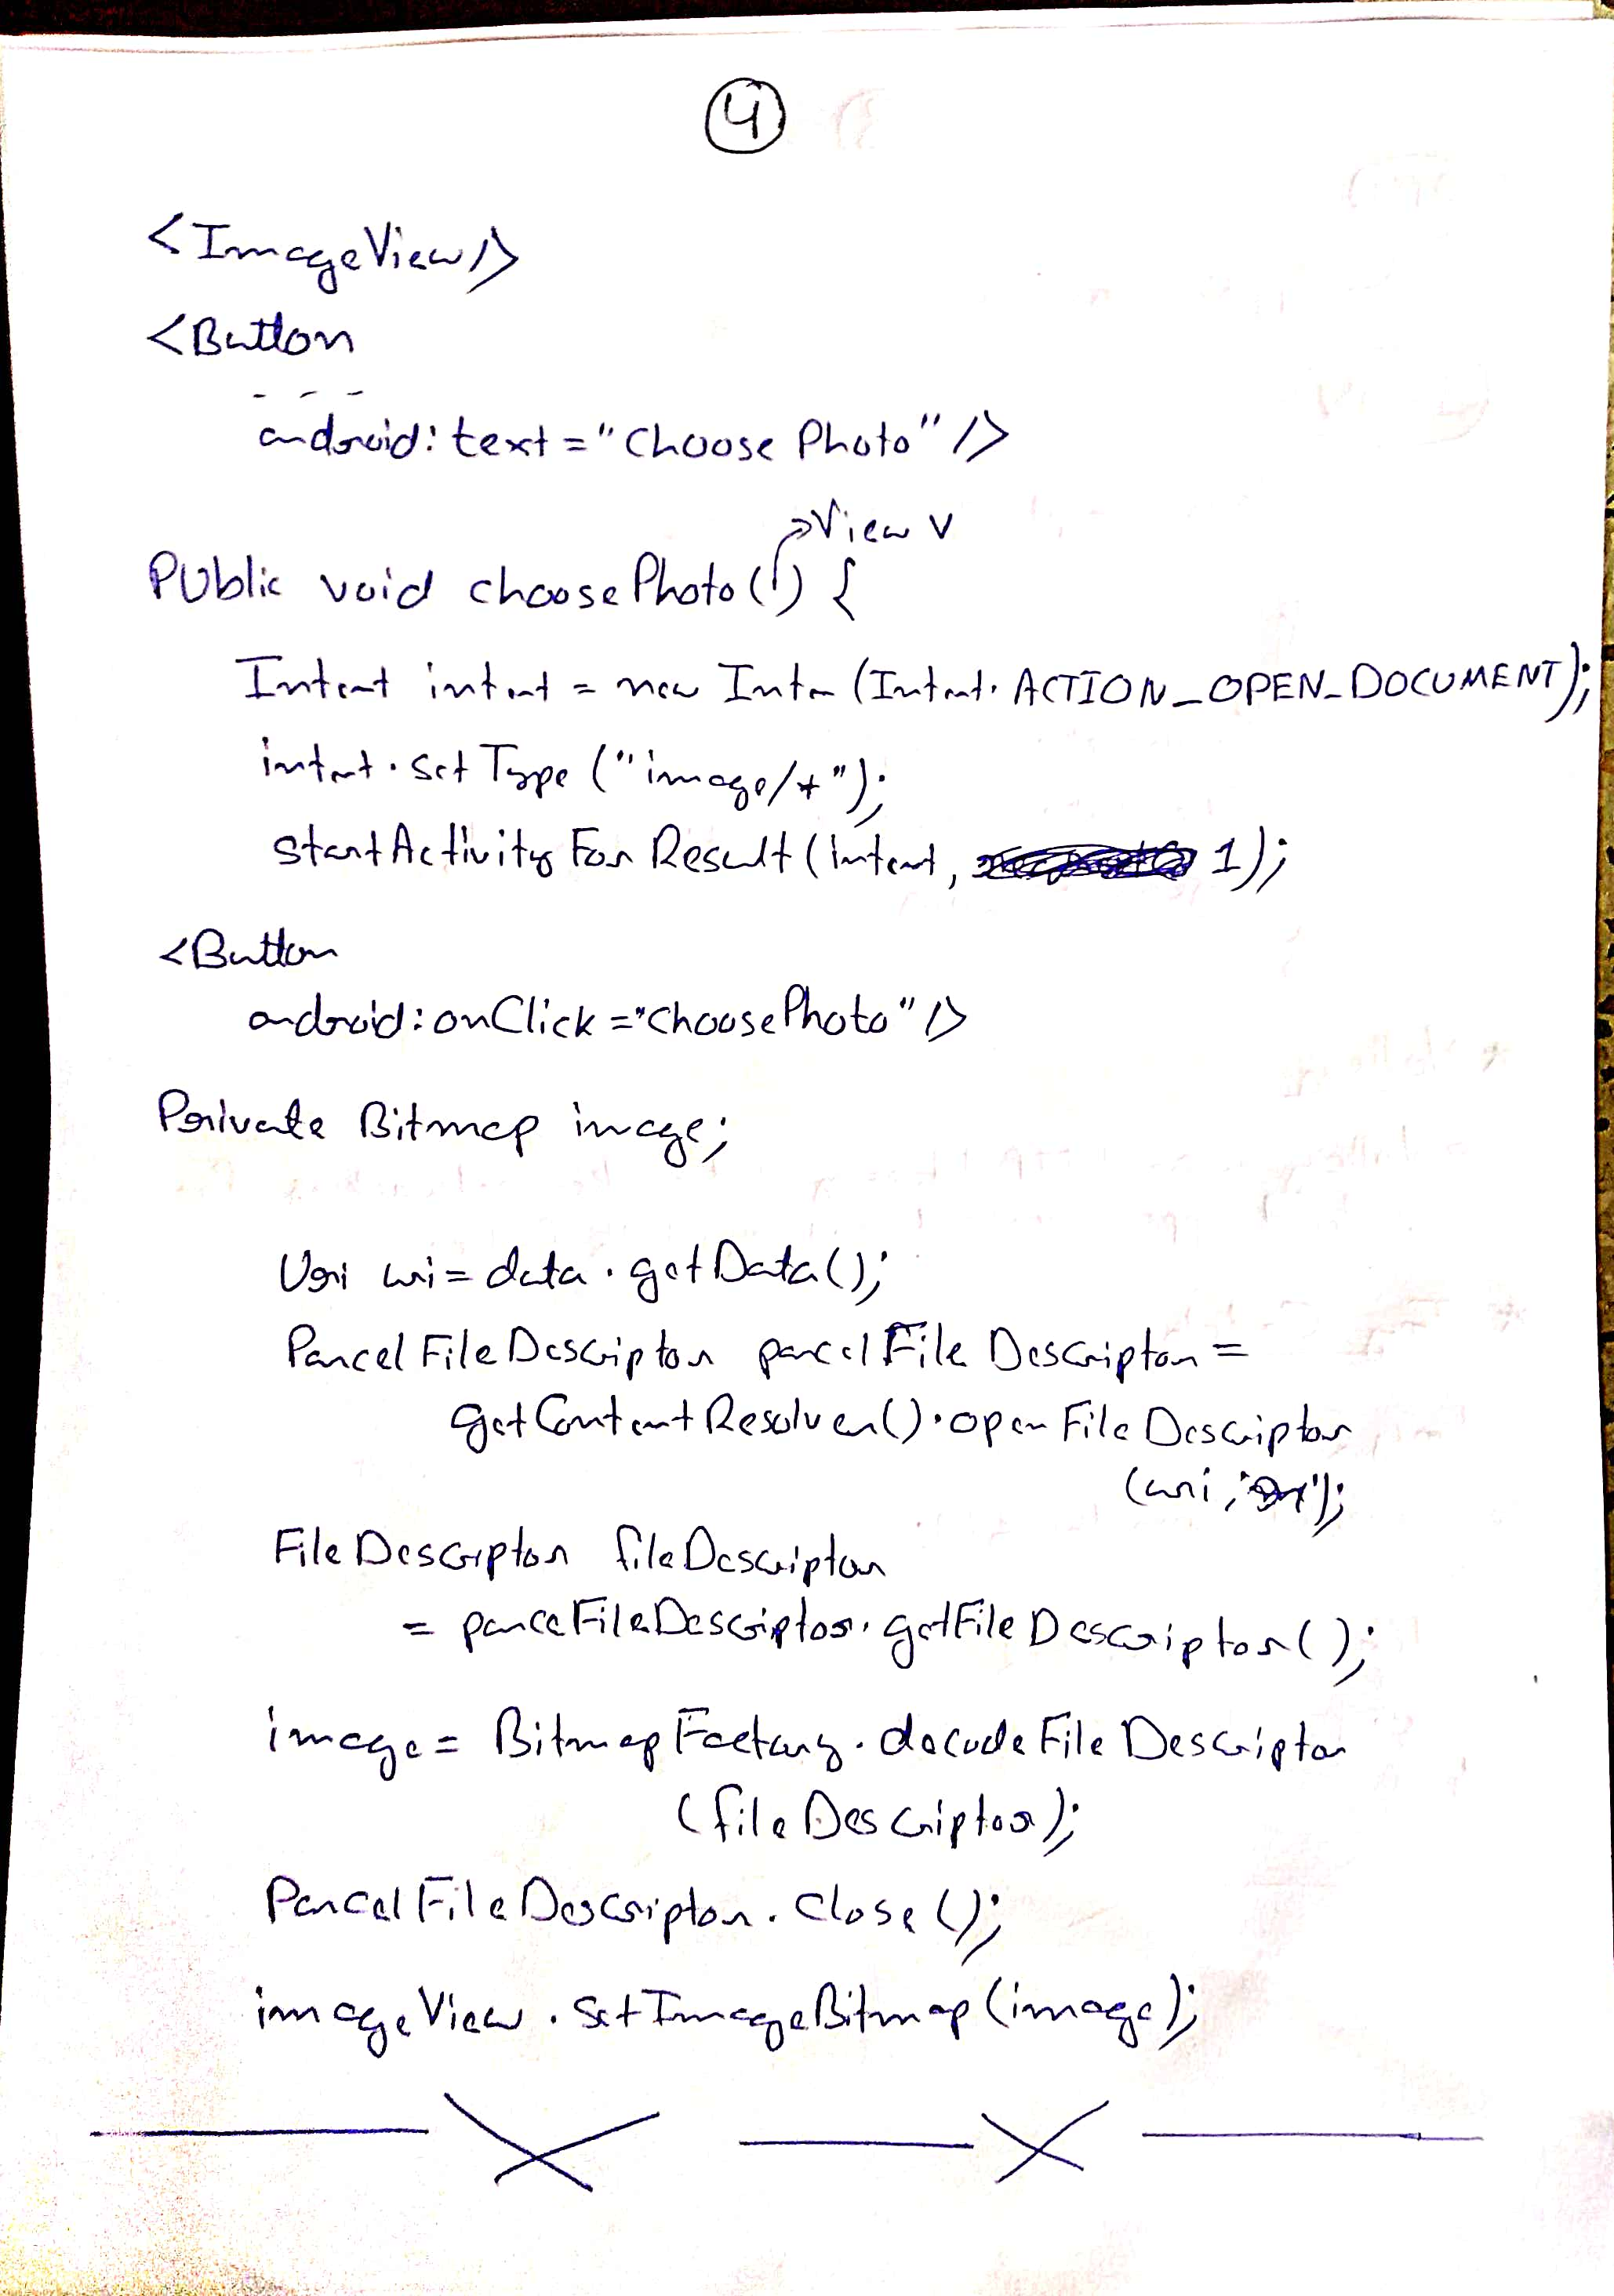 4
<ImageView/>
<Button
- - -
android:text="Choose Photo"/>
View v
Public void choosePhoto() {
Intent intent = new Inten (Intent.ACTION_OPEN_DOCUMENT);
intent.setType("image/*");
startActivityForResult(intent, 1);
<Button
android:onClick="choosePhoto"/>
Private Bitmap image;
Uri uri = data.getData();
ParcelFileDescriptor parcelFileDescriptor =
getContentResolver().openFileDescriptor
(uri, "r");
FileDescriptor fileDescriptor
= parceFileDescriptor.getFileDescriptor();
image = BitmapFactory.decodeFileDescriptor
(fileDescriptor);
ParcelFileDescriptor.close();
imageView.setImageBitmap(image);